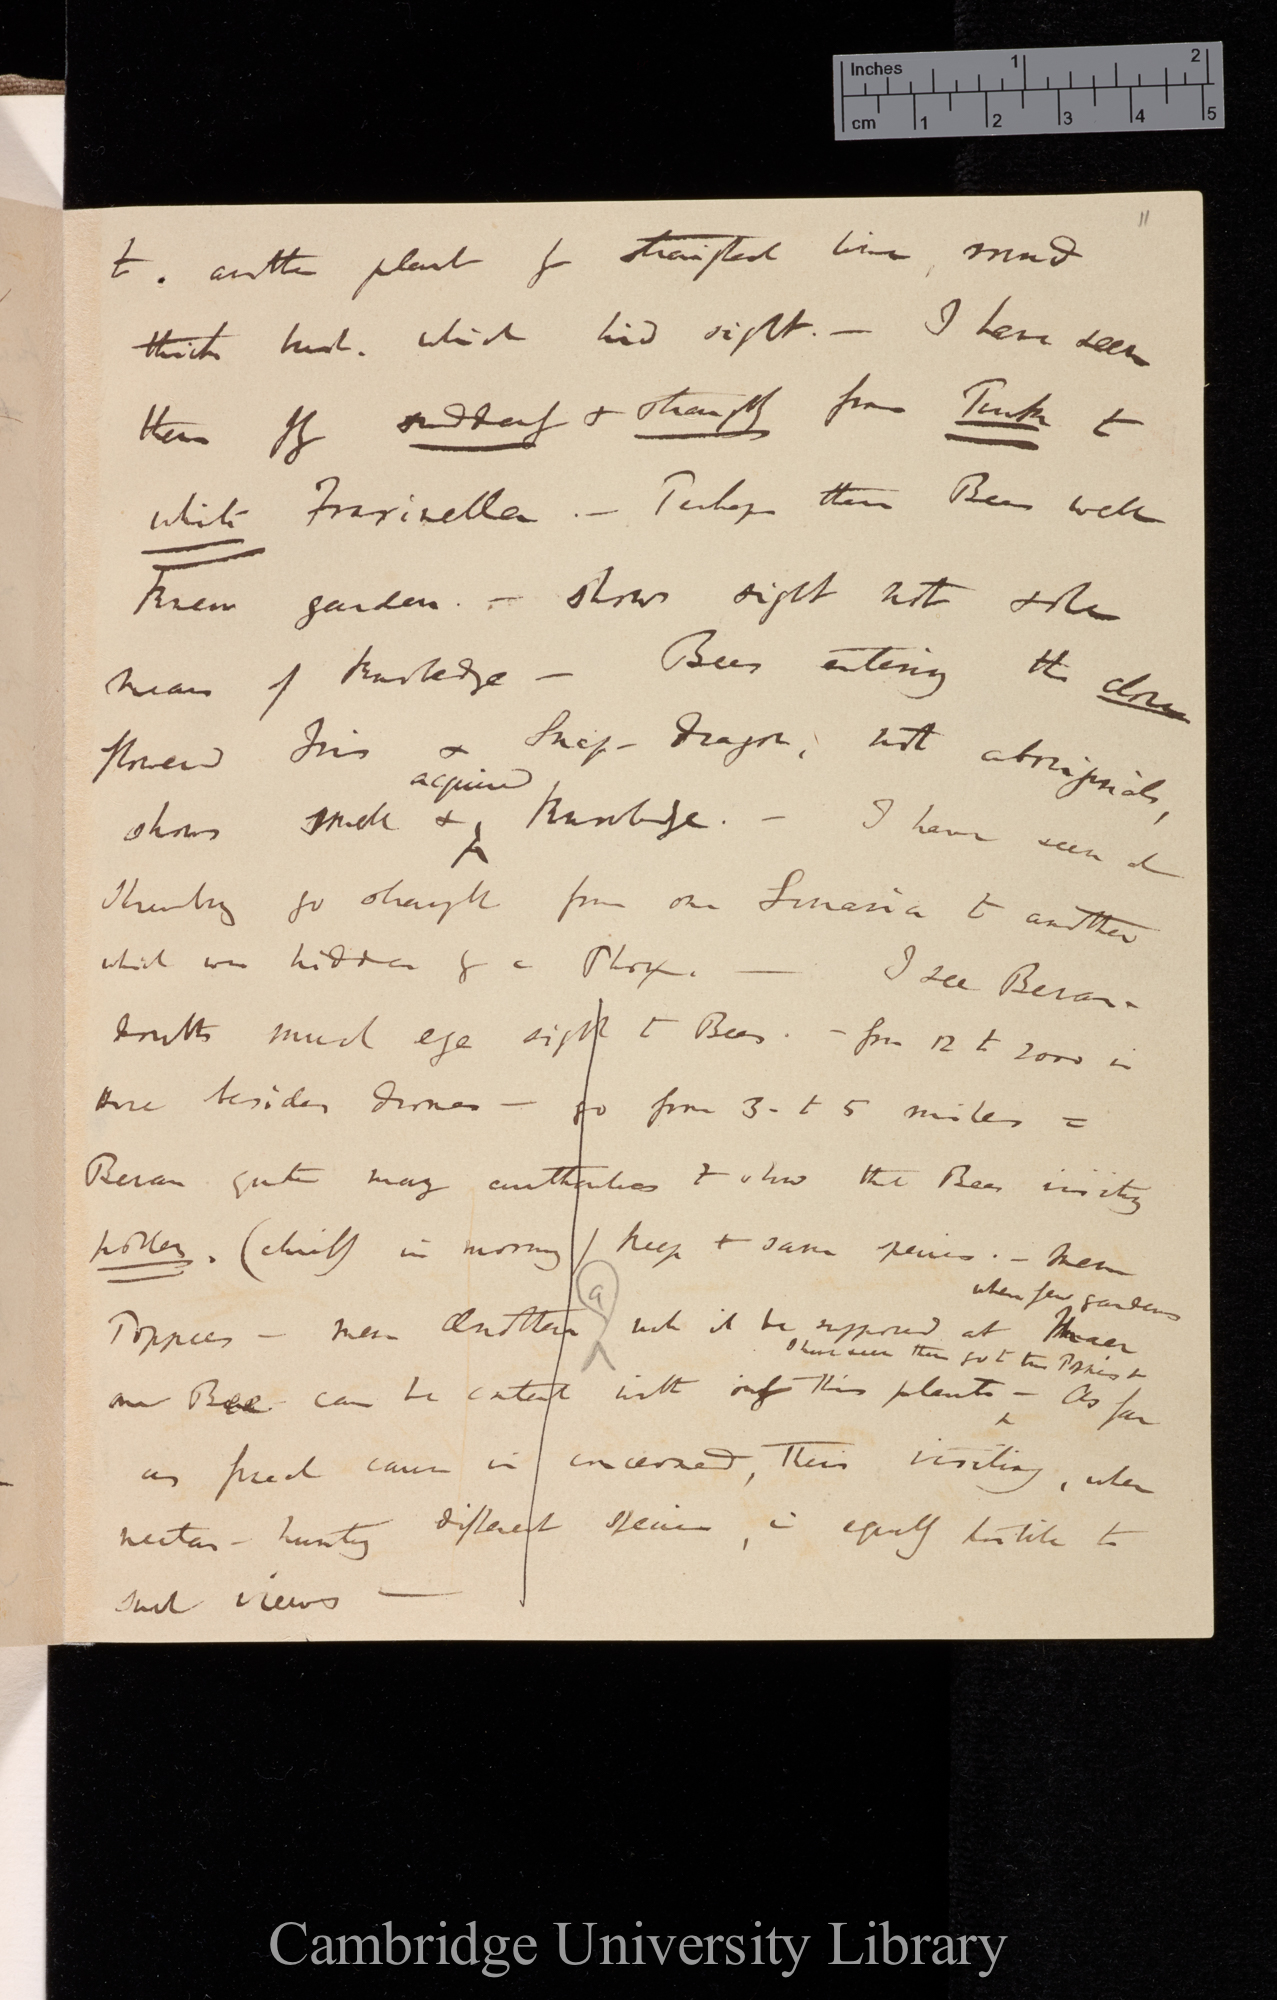 Inches 1 2
cm 1 2 3 4 5
11
to. another plant by straightest line, round
thick bush. which hid sight. — I have seen
them fly suddenly & straight from Pink to
white Fraxinella. — Perhaps these Bees well
knew garden. — shows sight not sole
means of knowledge — Bees entering the closed
flowered Iris & Snap-dragon, not aboriginals,
acquired
shows smell & knowledge. — I have seen at
Shrewsbury go straight from one Linaria to another
which was hidden by a Phlox. — I see Bevan.
doubts much eye sight to Bees. — from 12 to 2000 in
Hive besides drones — go from 3. to 5 miles =
Bevan quotes many authorities to show that Bees visiting
pollen, (chiefly in morning) keep to same species. — mem
when few gardens
Poppies — mem Anothera a will it be supposed at Maer
I have seen them go to two Poppies &
one Bee can be content with only three plants — As far
as final cause is concerned, their visiting, when
nectar-hunting different species, is equally hostile to
such views —
Cambridge University Library